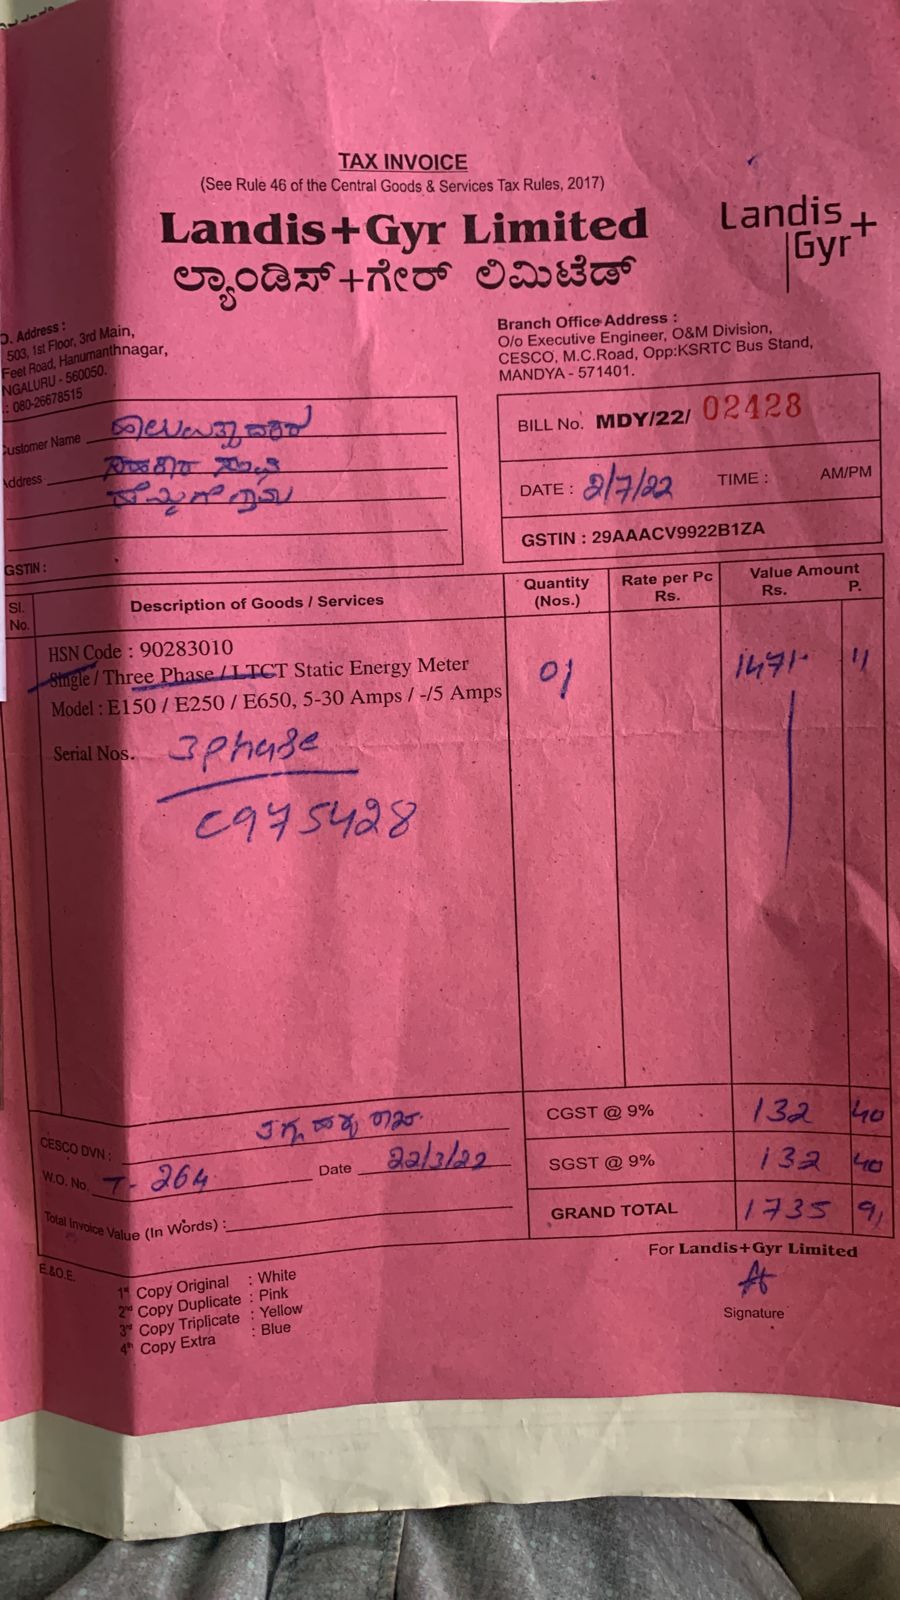 TAX INVOICE
(See Rule 46 of the Central Goods & Services Tax Rules, 2017)
Landis+Gyr Limited
ಲ್ಯಾಂಡಿಸ್+ಗೇರ್ ಲಿಮಿಟೆಡ್
Landis+
Gyr
O. Address :
503, 1st Floor, 3rd Main,
Feet Road, Hanumanthnagar,
NGALURU - 560050.
.: 080-26678515
Branch Office Address :
O/o Executive Engineer, O&M Division,
CESCO, M.C.Road, Opp:KSRTC Bus Stand,
MANDYA - 571401.
ustomer Name
Address
GSTIN :
BILL No. MDY/22/ 02428
DATE : 2/7/22 TIME : AM/PM
GSTIN : 29AAACV9922B1ZA
Sl. No. Description of Goods / Services Quantity (Nos.) Rate per Pc Rs. Value Amount Rs. P.
HSN Code : 90283010
Single / Three Phase / LTCT Static Energy Meter 01 1471- 11
Model : E150 / E250 / E650, 5-30 Amps / -/5 Amps
Serial Nos. 3 phase
C975428
CESCO DVN :
W.O. No. T- 264 Date 22/3/22
Total Invoice Value (In Words) :
CGST @ 9% 132 40
SGST @ 9% 132 40
GRAND TOTAL 1735 91
E.&O.E.
1st Copy Original : White
2nd Copy Duplicate : Pink
3rd Copy Triplicate : Yellow
4th Copy Extra : Blue
For Landis+Gyr Limited
Signature